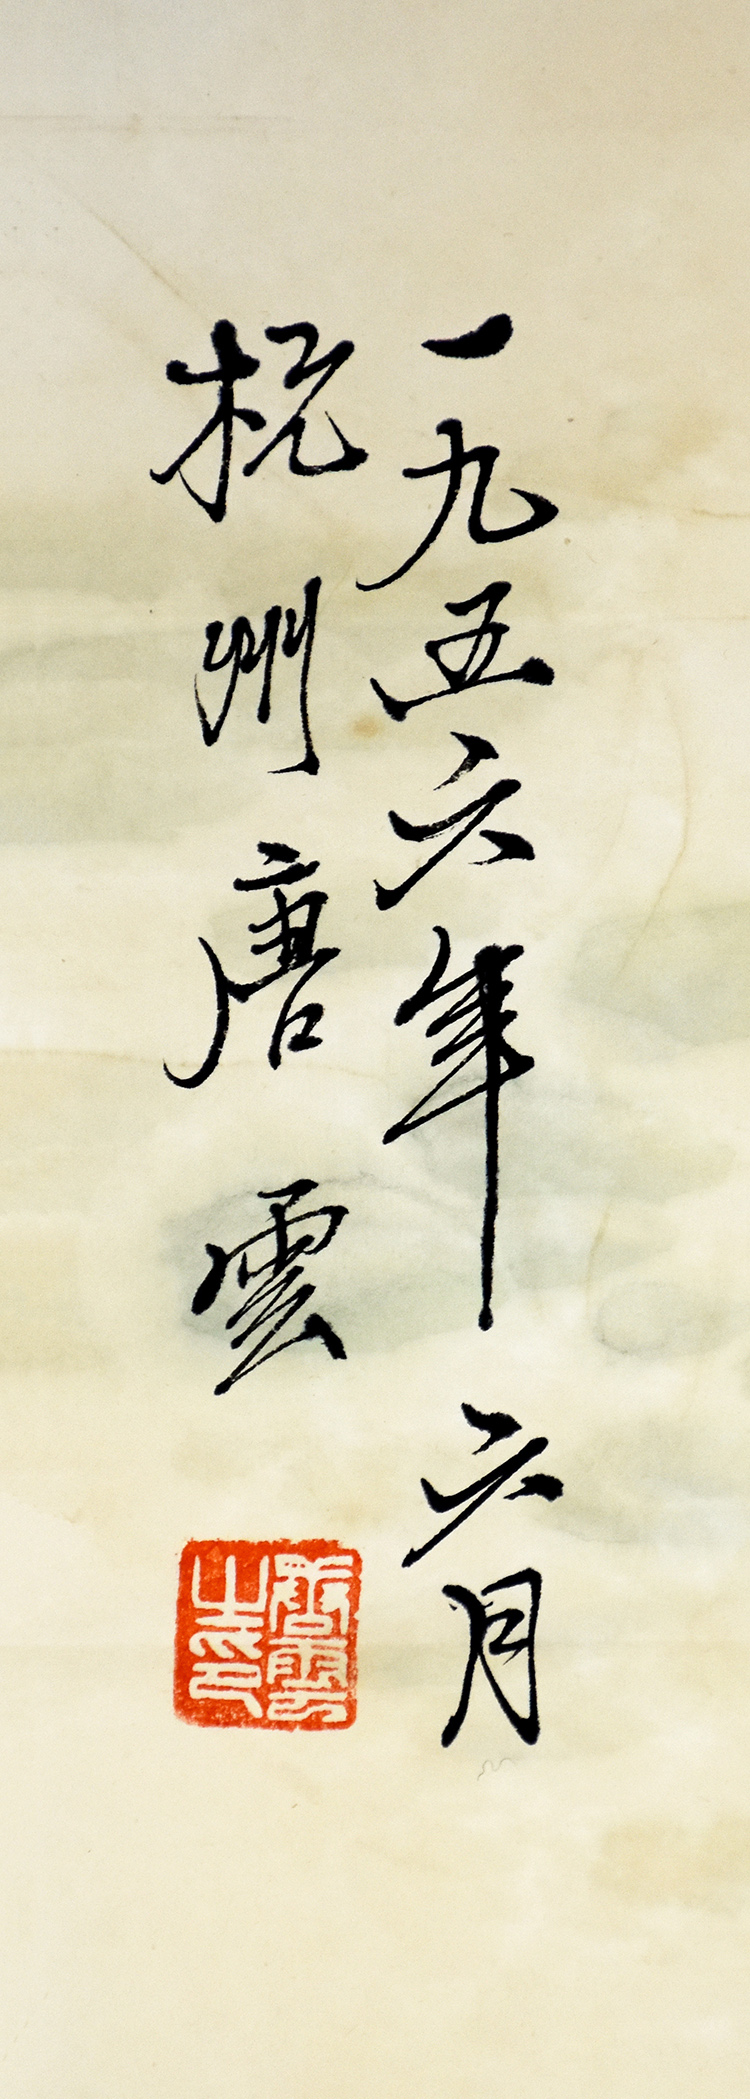 一九五六年六月
杭州唐雲
唐雲之印